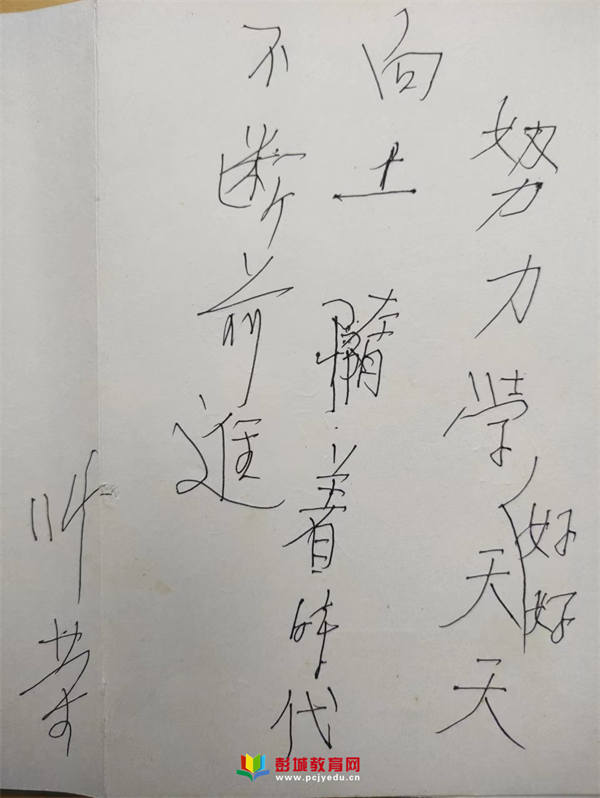 努力學好好天天
向上 隨着時代
不断前進
彭城教育网
www.pcjyedu.cn